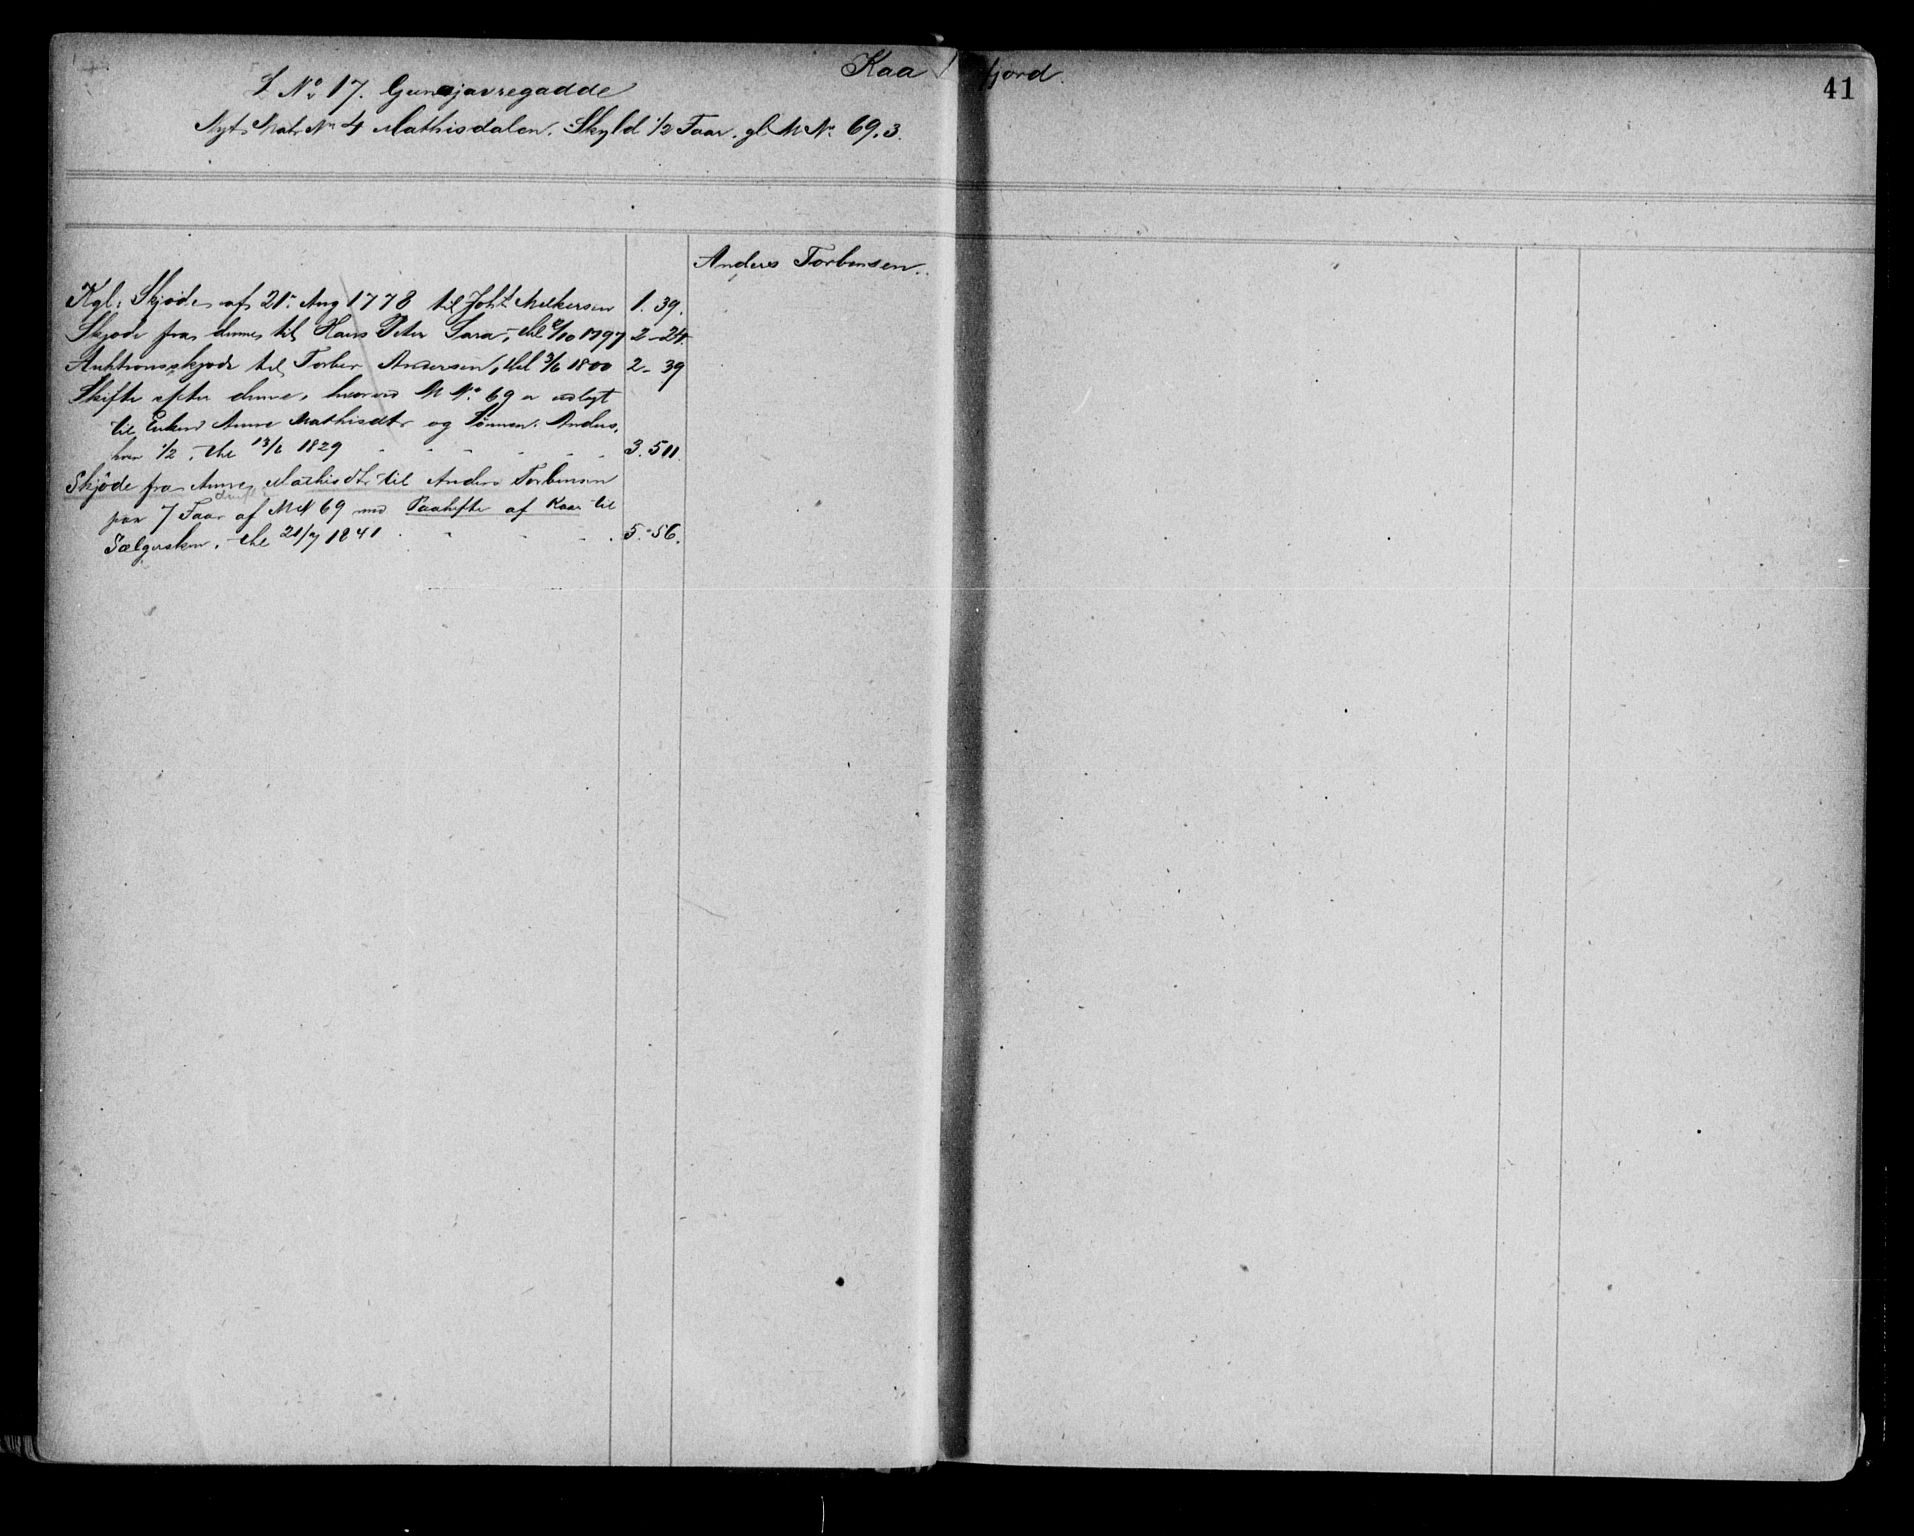 Kaafjord.
41
L No 17. Gunajavregadde
Nyt Matr No 4 Mathisdalen. Skyld 1/2 Faar. gl M No 69.3.
Anders Torbensen.
Kgl. Skjøde af 21. Aug 1778 til Joh. Melkersen 1. 39.
Skjøde fra denne til Hans Peter Sara, thl /10 1797 2-24.
Auktionsskjøde til Torber Andersen, thl 3/6 1800 2-39
Skifte efter denne, hvorved M No 69 er udlagt
til Enken Anne Mathisdtr og Sønnen Anders,
hver 1/2, thl 13/6 1829 3. 511.
Skjøde fra Anne Mathisdtr til Anders Torbensen
paa 7 Faar af M N 69 med Paahefte af Kaar til
Sælgersken, thl 21/7 1841 5. 56.